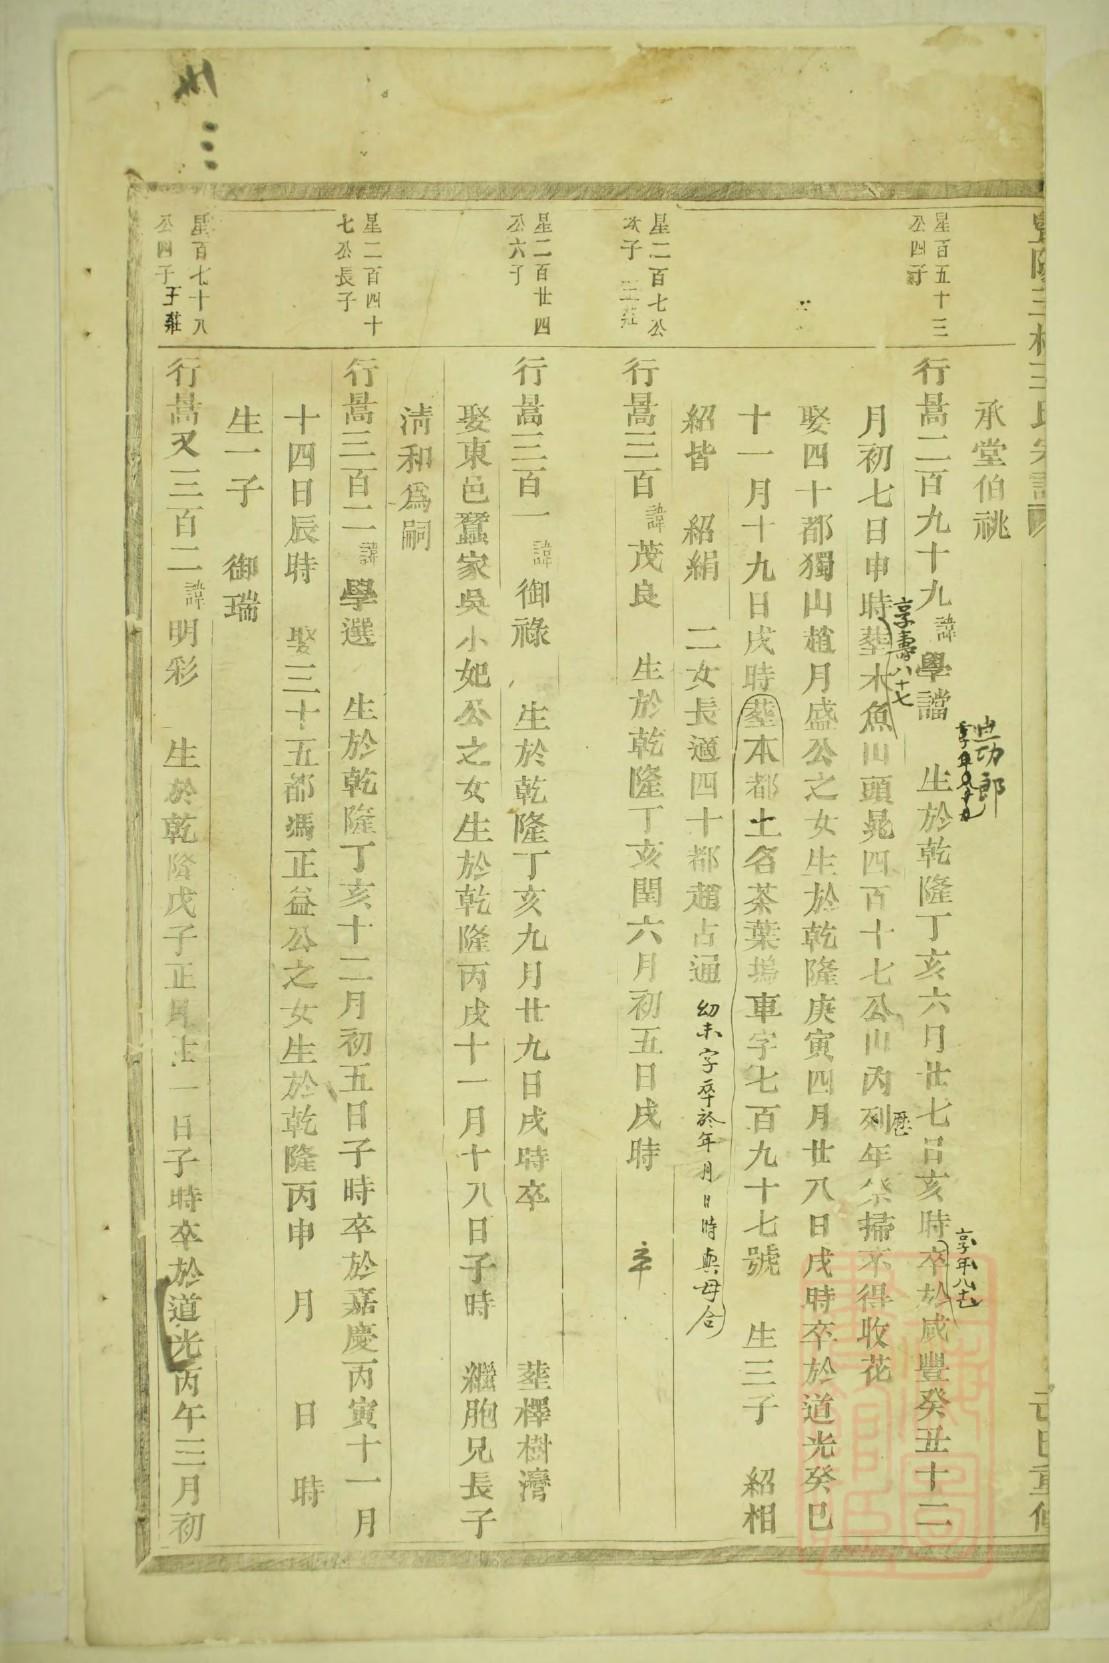 王氏宗譜
承堂伯祧
星百五十三
公四子
行暠二百九十九諱學譡 生於乾隆丁亥六月廿七日亥時卒於咸豐癸丑十二
迪功郎
享年八十七
月初七日申時塟木魚山頭晁四百十七公山內列年祭掃不得收花
享壽八十七
歷
娶四十都獨山趙月盛公之女生於乾隆庚寅四月廿八日戌時卒於道光癸巳
十一月十九日戌時塟本都土名茶葉塢車字七百九十七號 生三子 紹相
紹皆 紹絹 二女長適四十都趙占通 幼未字卒於年月日時與母合
星二百七公
次子 王莊
行暠三百諱茂良 生於乾隆丁亥閏六月初五日戌時 卒
星二百廿四
公六子
行暠三百一諱御祿 生於乾隆丁亥九月廿九日戌時卒 塟檡樹灣
娶東邑蠶家吳小妃公之女生於乾隆丙戌十一月十八日子時 繼胞兄長子
清和爲嗣
星二百四十
七公長子
行暠三百二諱學選 生於乾隆丁亥十二月初五日子時卒於嘉慶丙寅十一月
十四日辰時 娶三十五都馮正益公之女生於乾隆丙申 月 日 時
生一子 御瑞
星百七十八
公四子 王莊
行暠又三百二諱明彩 生於乾隆戊子正月廿一日子時卒於道光丙午三月初